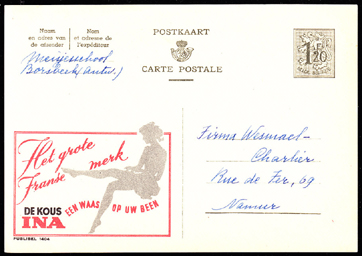 Naam en adres van de afzender
Nom et adresse de l'expéditeur
POSTKAART
CARTE POSTALE
1F20
Meisjesschool
Borsbeek (Antw.)
Het grote
Franse merk
DE KOUS
INA
EEN WAAS OP UW BEEN
PUBLIBEL 1404
Firma Wesmael-
Charlier.
Rue de Fer, 69
Namur